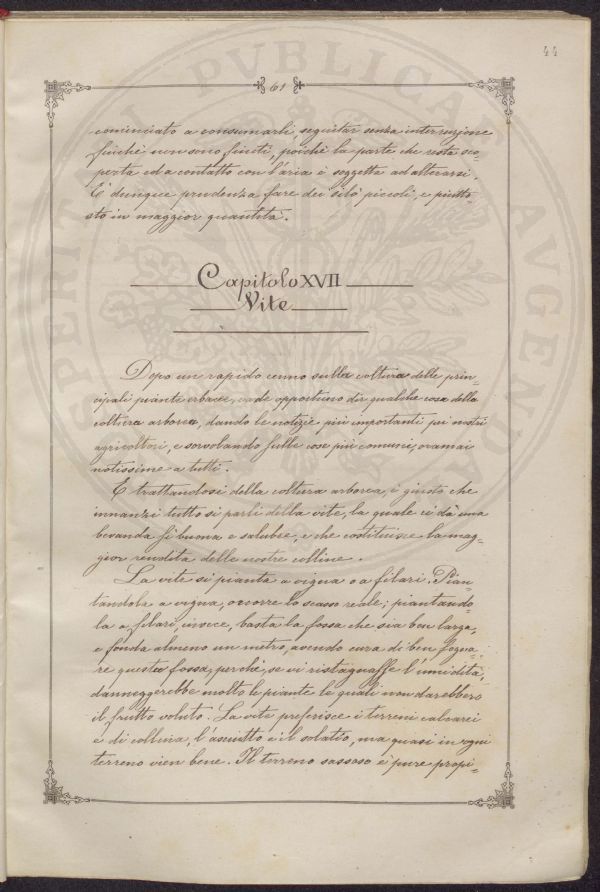 44
61
cominciato a consumarli, seguitar senza interruzione
finchè non sono finiti, poichè la parte che resta sco-
perta ed a contatto con l'aria è soggetta ad alterarsi.
E' dunque prudenza fare dei silò piccoli, e piutto-
sto in maggior quantità.
Capitolo XVII
Vite
Dopo un rapido cenno sulla coltura delle prin-
cipali piante erbacee, cade opportuno dir qualche cosa della
coltura arborea, dando le notizie più importanti pei nostri
agricoltori, e sorvolando sulle cose più comuni, oramai
notissime a tutti.
E trattandosi della coltura arborea, è giusto che
innanzi tutto si parli della vite, la quale ci dà una
bevanda sì buona e salubre, e che costituisce la mag-
gior rendita delle nostre colline.
La vite si pianta a vigna o a filari. Pian-
tandola a vigna, occorre lo scasso reale; piantando-
la a filari, invece, basta la fossa che sia ben larga,
e fonda almeno un metro, avendo cura di ben fogna-
re questa fossa, perchè, se vi ristagnasse l'umidità,
danneggerebbe molto le piante le quali non darebbero
il frutto voluto. La vite preferisce i terreni calcarei
e di collina, l'asciutto e il solatio, ma quasi in ogni
terreno vien bene. Il terreno sassoso è pure propi-
PERITIA PVBLICAE AVGENDA